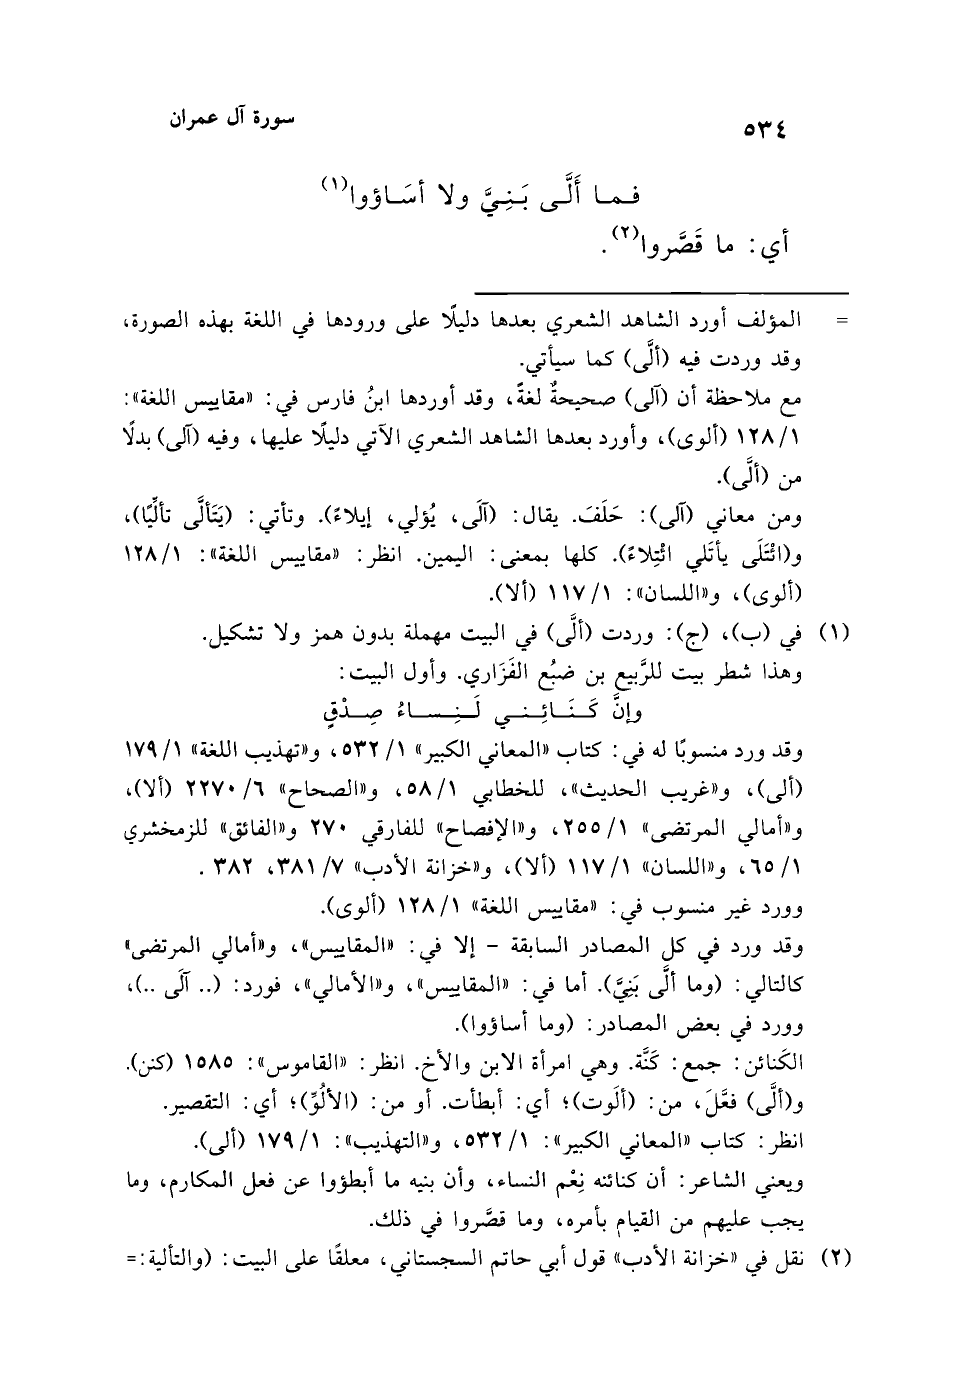 ٥٣٤
سورة آل عمران
فـمـا أَلَّـى بَـنِـيَّ ولا أسَـاؤوا(١)
أي: ما قَصَّروا(٢).
= المؤلف أورد الشاهد الشعري بعدها دليلًا على ورودها في اللغة بهذه الصورة،
وقد وردت فيه (ألَّى) كما سيأتي.
مع ملاحظة أن (آلى) صحيحةٌ لغةً، وقد أوردها ابنُ فارس في: «مقاييس اللغة»:
١/ ١٢٨ (ألوى)، وأورد بعدها الشاهد الشعري الآتي دليلًا عليها، وفيه (آلى) بدلًا
من (ألَّى).
ومن معاني (آلى): حَلَفَ. يقال: (آلَى، يُؤلي، إيلاءً). وتأتي: (يَتَألَّى تألِّيًا)،
و(ائْتَلَى يأتَلي ائْتِلاءً). كلها بمعنى: اليمين. انظر: «مقاييس اللغة»: ١/ ١٢٨
(ألوى)، و«اللسان»: ١/ ١١٧ (ألا).
(١) في (ب)، (ج): وردت (ألَّى) في البيت مهملة بدون همز ولا تشكيل.
وهذا شطر بيت للرَّبيع بن ضبُع الفَزَاري. وأول البيت:
وإنَّ كَـنَـائِـنـي لَـنِـسـاءُ صِـدْقٍ
وقد ورد منسوبًا له في: كتاب «المعاني الكبير» ١/ ٥٣٢، و«تهذيب اللغة» ١/ ١٧٩
(ألى)، و«غريب الحديث»، للخطابي ١/ ٥٨، و«الصحاح» ٦/ ٢٢٧٠ (ألا)،
و«أمالي المرتضى» ١/ ٢٥٥، و«الإفصاح» للفارقي ٢٧٠ و«الفائق» للزمخشري
١/ ٦٥، و«اللسان» ١/ ١١٧ (ألا)، و«خزانة الأدب» ٧/ ٣٨١، ٣٨٢ .
وورد غير منسوب في: «مقاييس اللغة» ١/ ١٢٨ (ألوى).
وقد ورد في كل المصادر السابقة - إلا في: «المقاييس»، و«أمالي المرتضى»
كالتالي: (وما ألَّى بَنِيَّ). أما في: «المقاييس»، و«الأمالي»، فورد: (.. آلَى ..)،
وورد في بعض المصادر: (وما أساؤوا).
الكَنائن: جمع: كَنَّة. وهي امرأة الابن والأخ. انظر: «القاموس»: ١٥٨٥ (كنن).
و(ألَّى) فعَّلَ، من: (ألَوت)؛ أي: أبطأت. أو من: (الألُوِّ)؛ أي: التقصير.
انظر: كتاب «المعاني الكبير»: ١/ ٥٣٢، و«التهذيب»: ١/ ١٧٩ (ألى).
ويعني الشاعر: أن كنائنه نِعْم النساء، وأن بنيه ما أبطؤوا عن فعل المكارم، وما
يجب عليهم من القيام بأمره، وما قصَّروا في ذلك.
(٢) نقل في «خزانة الأدب» قول أبي حاتم السجستاني، معلقًا على البيت: (والتألية:=